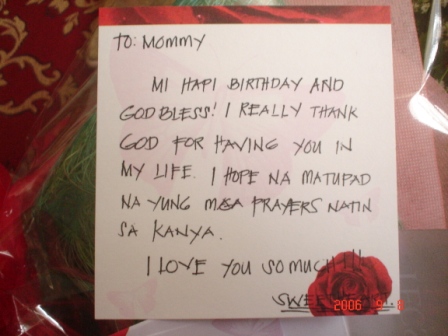 TO: MOMMY
MI HAPI BIRTHDAY AND
GOD BLESS! I REALLY THANK
GOD FOR HAVING YOU IN
MY LIFE. I HOPE NA MATUPAD
NA YUNG MGA PRAYERS NATIN
SA KANYA.
I LOVE YOU SO MUCH!!!
2006